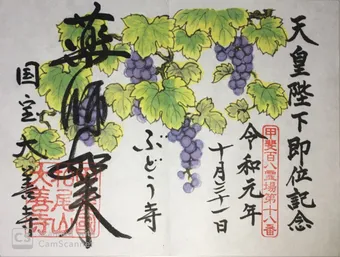 天皇陛下即位記念
甲斐百八霊場第十八番
令和元年
十月三十一日
ぶどう寺
薬師如来
国宝大善寺
柏尾山
大善寺
CS CamScanner